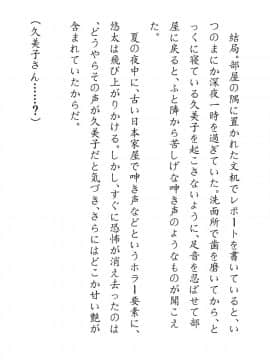 結局。部屋の隅に置かれた文机でレポートを書いていると、い
つのまにか深夜一時を過ぎていた。洗面所で歯を磨いてから、と
っくに寝ている久美子を起こさないように、足音を忍ばせて部
屋に戻ると、ふと隣から苦しげな呻き声のようなものが聞こえ
た。
夏の夜中に、古い日本家屋で呻き声などというホラー要素に、
悠太は飛び上がりかける。しかし、すぐに恐怖が消え去ったのは
、どうやらその声が久美子だと気づき、さらにはどこか甘い艶が
含まれていたからだ。
（久美子さん……？）